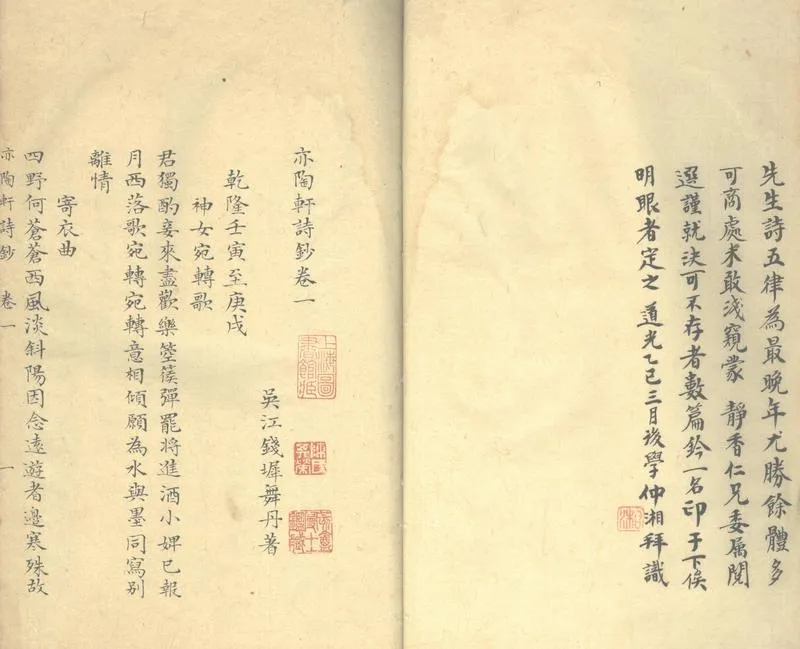 先生詩五律為最晚年尤勝餘體多
可商處未敢淺窺蒙 靜香仁兄委屬閱
選謹就決可不存者數篇鈐一名印于下俟
明眼者定之 道光乙巳三月後學仲湘拜識
亦陶軒詩鈔卷一
上海圖書館藏
吳江錢墀舞丹著
乾隆壬寅至庚戌
神女宛轉歌
君獨酌妾來盡歡樂箜篌彈罷將進酒小婢已報
月西落歌宛轉宛轉意相傾願為水與墨同寫別
離情
寄衣曲
四野何蒼蒼西風淡斜陽因念遠遊者邊寒殊故
亦陶軒詩鈔 卷一 一